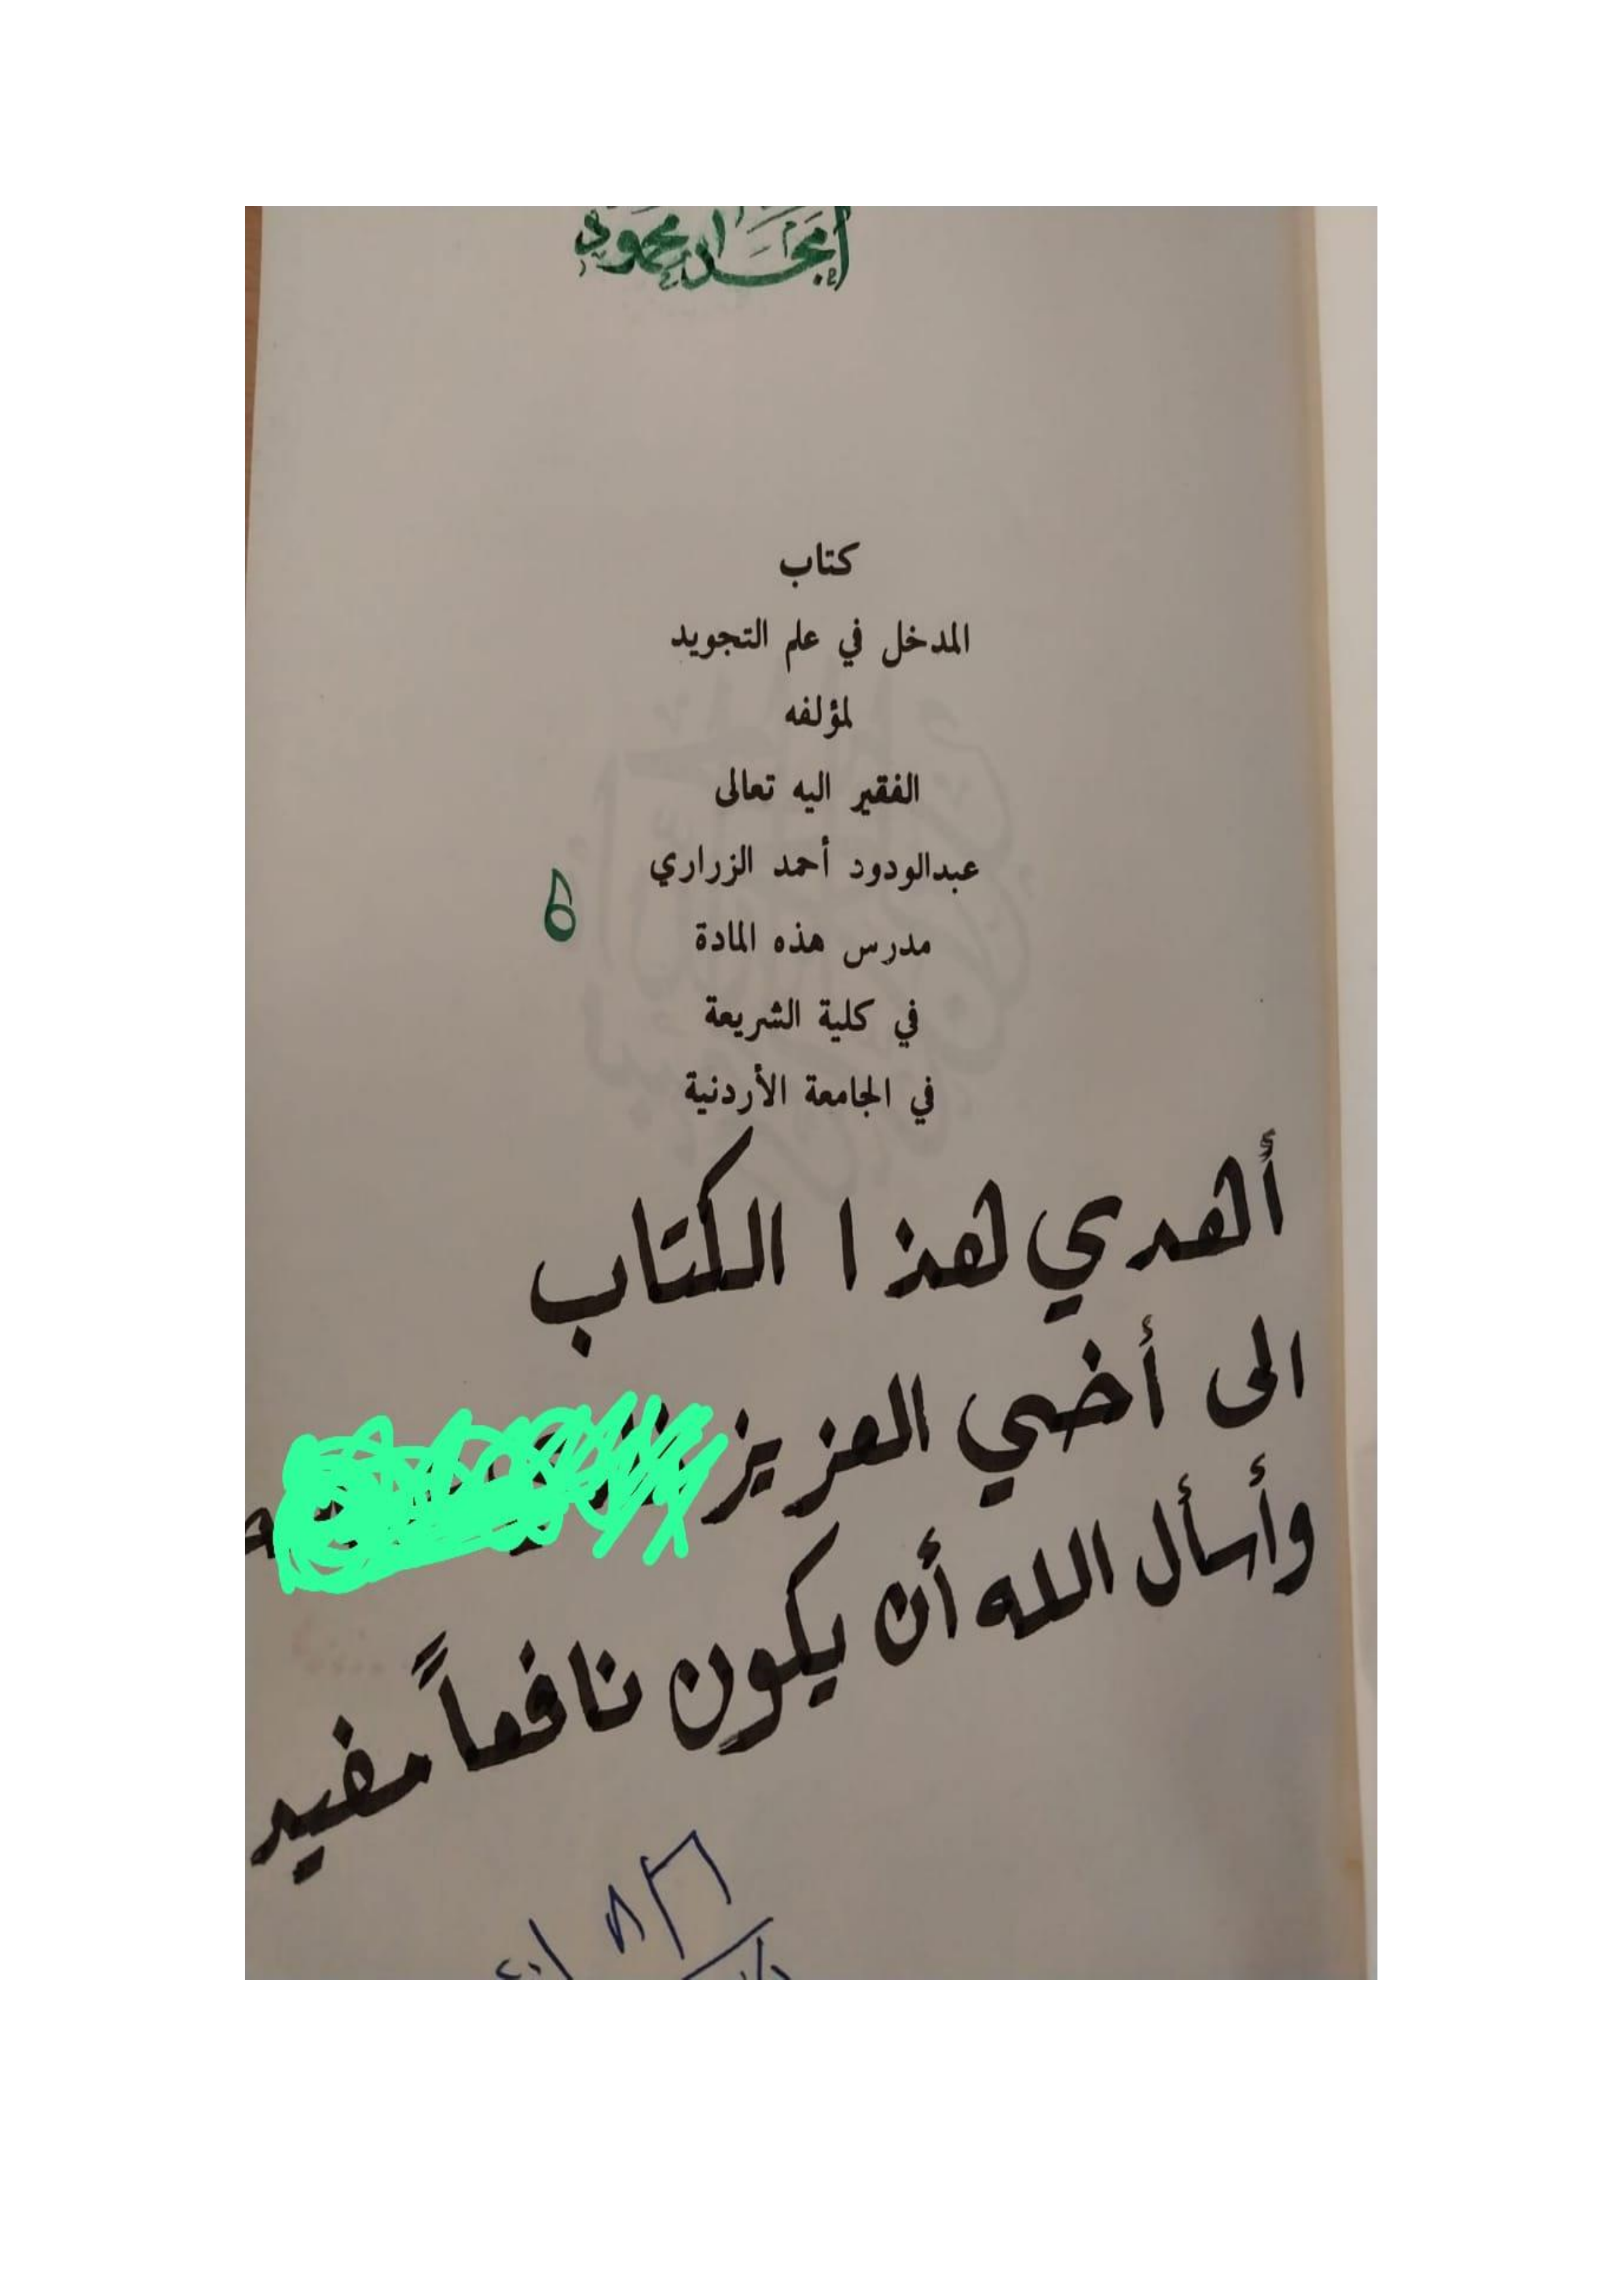 أمجد محمود
كتاب
المدخل في علم التجويد
لمؤلفه
الفقير اليه تعالى
عبدالودود أحمد الزراري
مدرس هذه المادة
في كلية الشريعة
في الجامعة الأردنية
أهدي هذا الكتاب
الى أخي العزيز
وأسأل الله أن يكون نافعاً مفيد